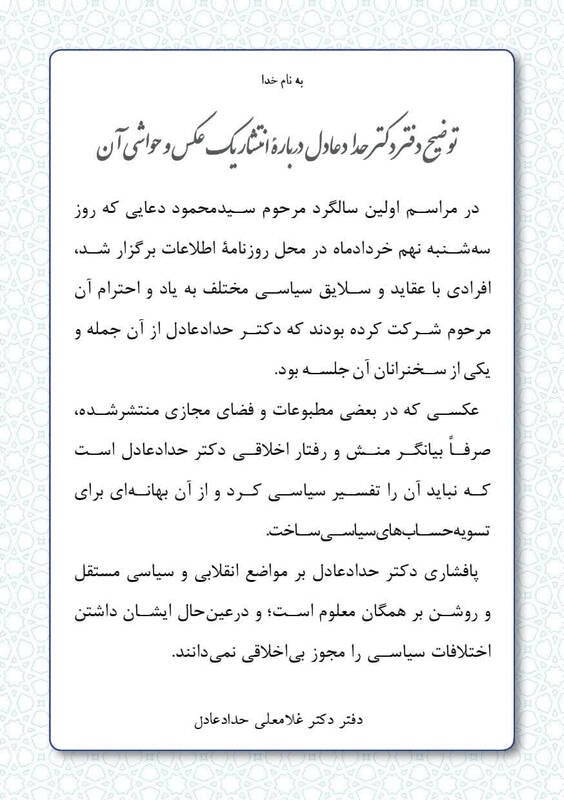 به نام خدا
توضیح دفتر دکتر حداد عادل درباره انتشار یک عکس و حواشی آن
در مراسم اولین سالگرد مرحوم سیدمحمود دعایی که روز
سه‌شنبه نهم خردادماه در محل روزنامهٔ اطلاعات برگزار شد،
افرادی با عقاید و سلایق سیاسی مختلف به یاد و احترام آن
مرحوم شرکت کرده بودند که دکتر حدادعادل از آن جمله و
یکی از سخنرانان آن جلسه بود.
عکسی که در بعضی مطبوعات و فضای مجازی منتشرشده،
صرفاً بیانگر منش و رفتار اخلاقی دکتر حدادعادل است
که نباید آن را تفسیر سیاسی کرد و از آن بهانه‌ای برای
تسویه‌حساب‌های‌سیاسی‌ساخت.
پافشاری دکتر حدادعادل بر مواضع انقلابی و سیاسی مستقل
و روشن بر همگان معلوم است؛ و درعین‌حال ایشان داشتن
اختلافات سیاسی را مجوز بی‌اخلاقی نمی‌دانند.
دفتر دکتر غلامعلی حدادعادل